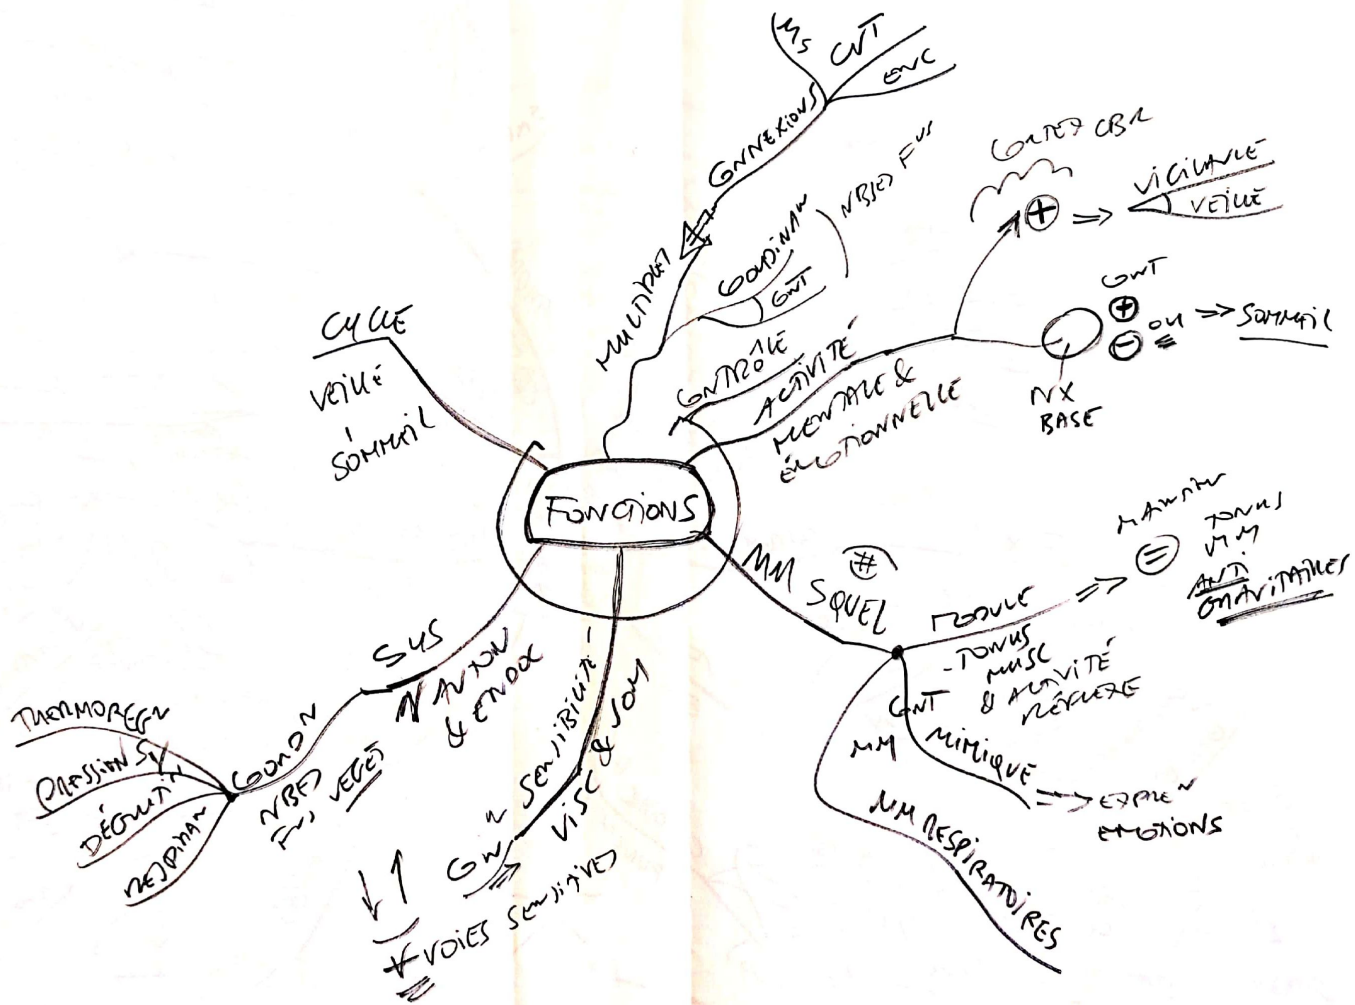 FONCTIONS
MULTIPLES
CONNEXIONS
MS
CNT
ENC
COORDINAN
CNT
NBSES FNS
CONTRÔLE
ACTIVITÉ
MENTALE &
ÉMOTIONNELLE
CORTEX CBR
+ => VIGILANCE
VEILLE
NX
BASE
CONT
+
- OU => SOMMEIL
MM
SQUEL
#
MODULE
- TONUS
MUSC
& ACTIVITÉ
RÉFLEXE
=> =
MAINTIEN
TONUS
MM
ANTI
GRAVITAIRES
CONT
MM
MIMIQUE
=> EXPREN
EMOTIONS
MM RESPIRATOIRES
SENSIBILITÉ
VISC & SOM
VOIES SENSITIVES
SYS
N AUTON
& ENDOC
COORDON
NBSES
FNS VEGET
THERMOREGN
PRESSION SV
DÉGLUTIN
RESPIRAN
CYCLE
VEILLE
SOMMEIL